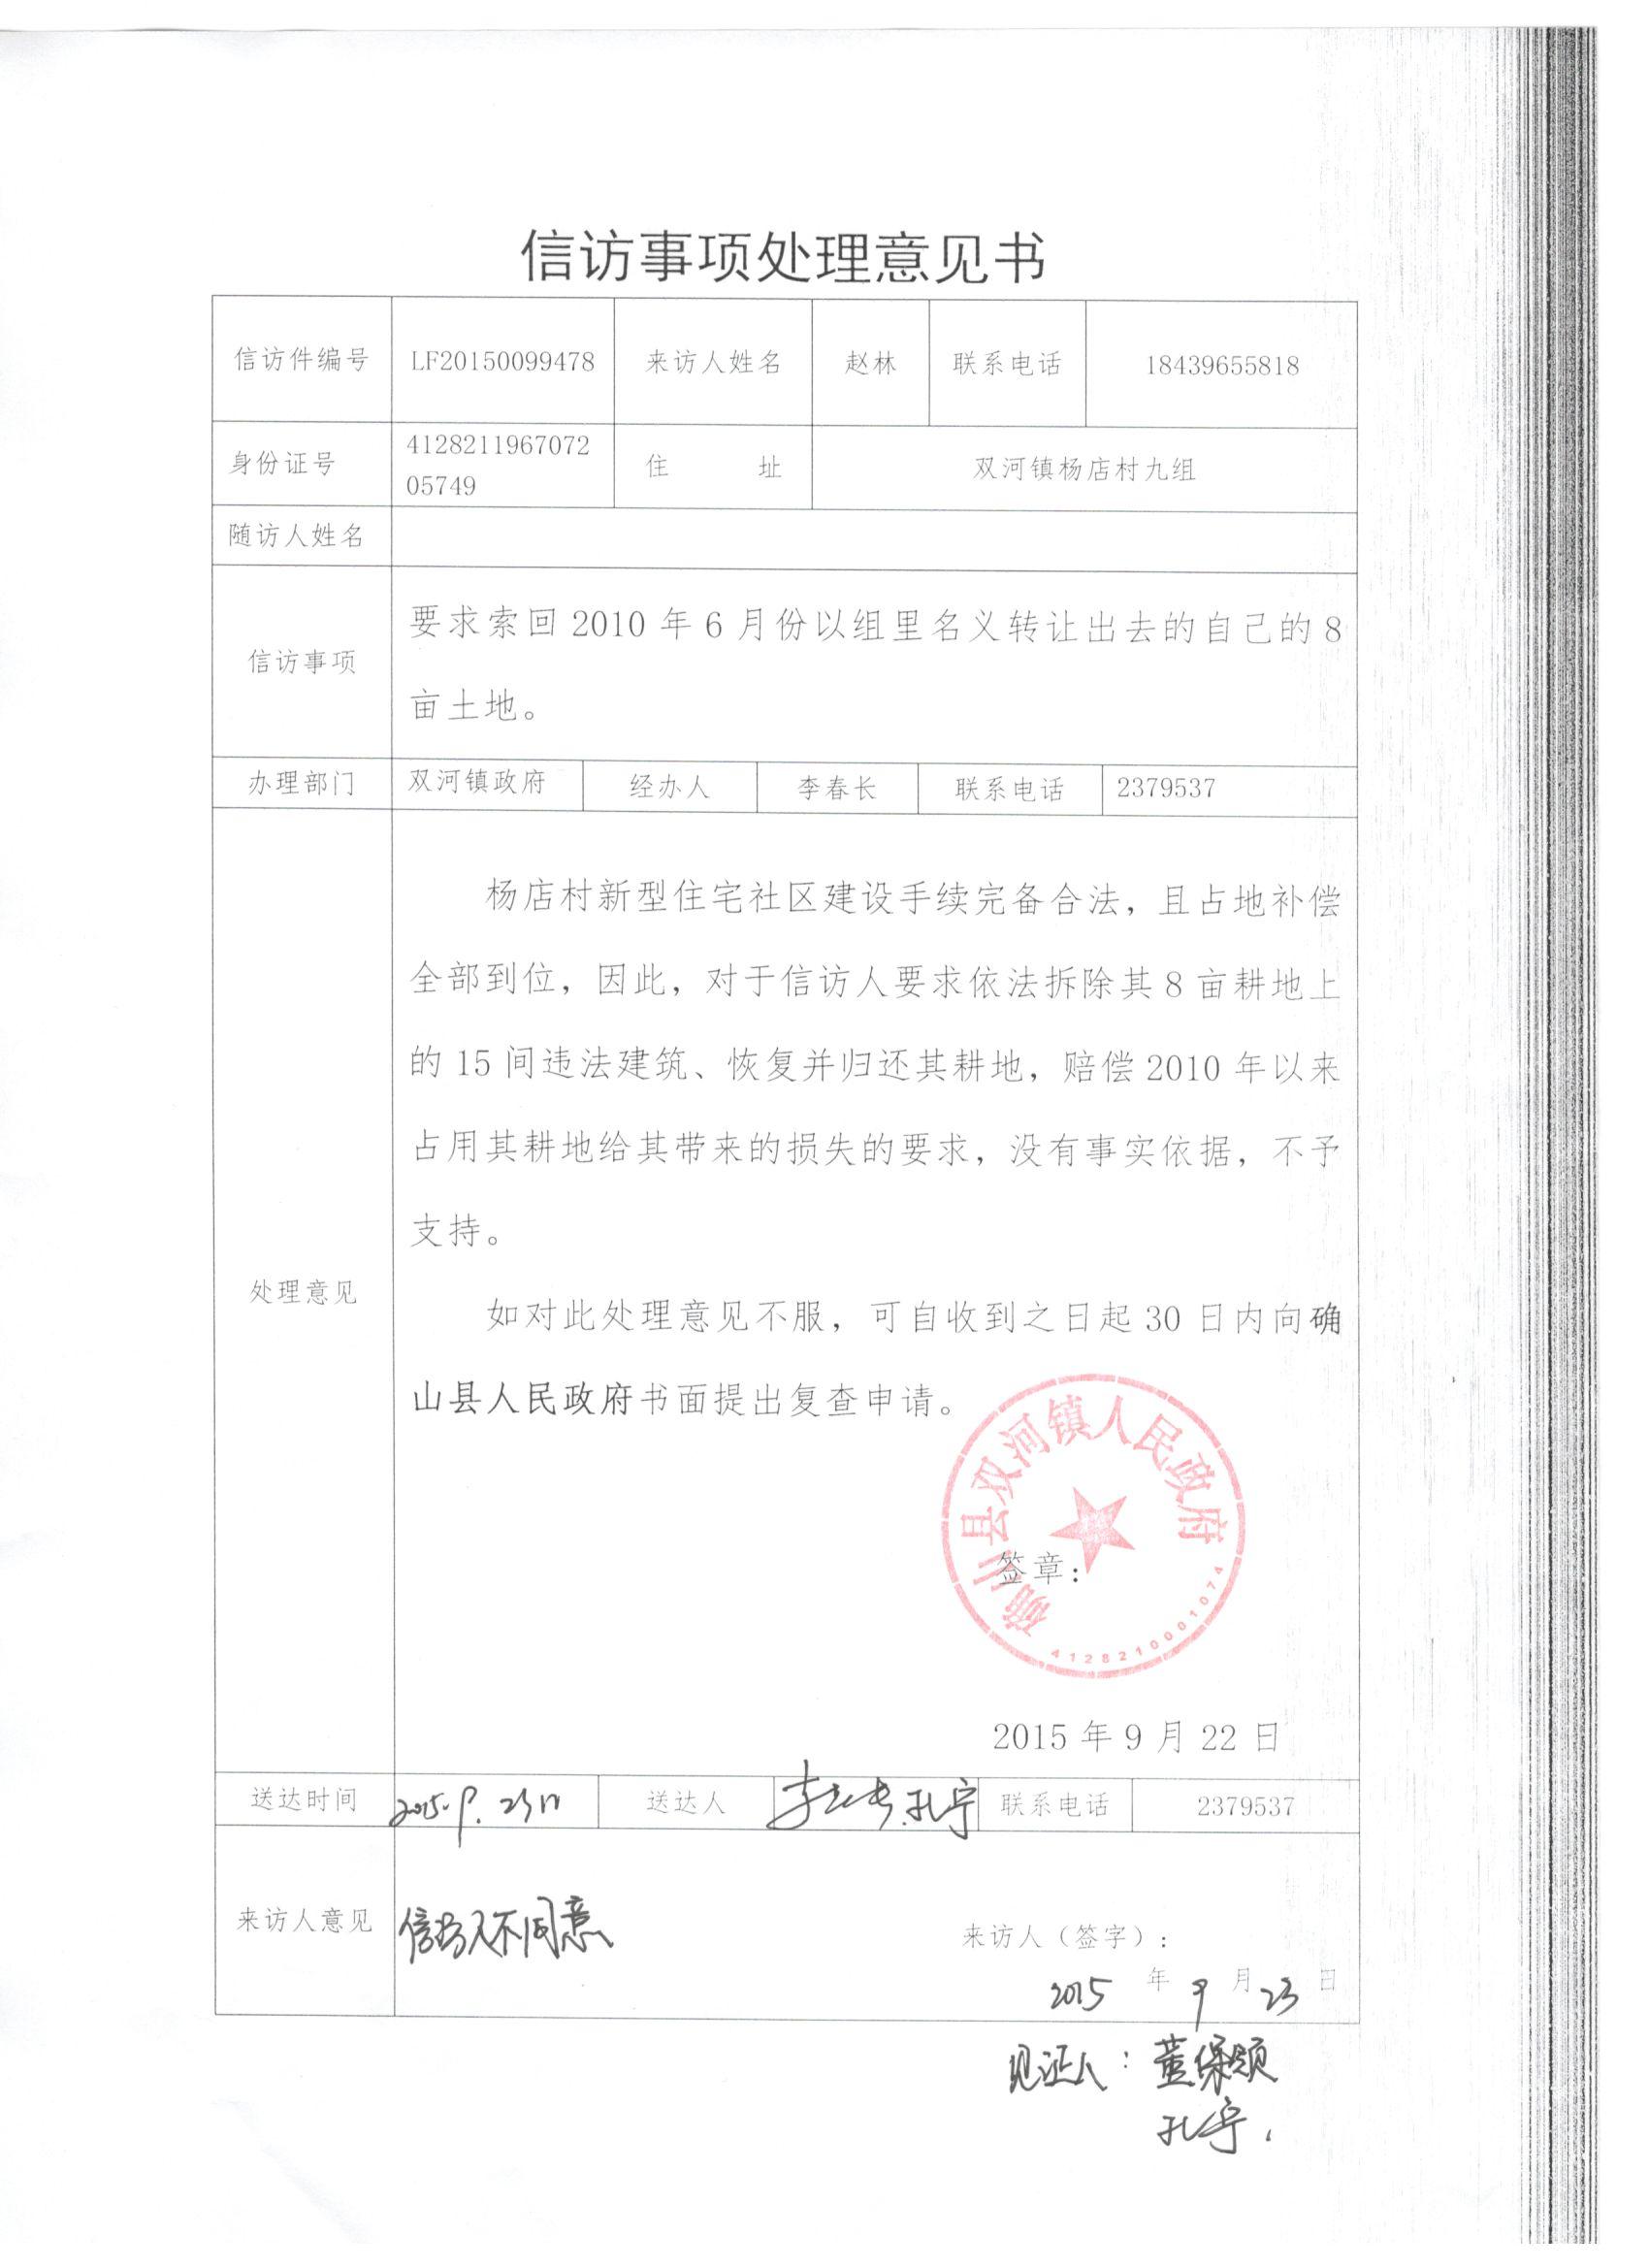 信访事项处理意见书
信访件编号 LF20150099478 来访人姓名 赵林 联系电话 18439655818
身份证号 4128211967072
05749 住 址 双河镇杨店村九组
随访人姓名
信访事项 要求索回 2010 年 6 月份以组里名义转让出去的自己的 8
亩土地。
办理部门 双河镇政府 经办人 李春长 联系电话 2379537
处理意见
杨店村新型住宅社区建设手续完备合法，且占地补偿
全部到位，因此，对于信访人要求依法拆除其 8 亩耕地上
的 15 间违法建筑、恢复并归还其耕地，赔偿 2010 年以来
占用其耕地给其带来的损失的要求，没有事实依据，不予
支持。
如对此处理意见不服，可自收到之日起 30 日内向确
山县人民政府书面提出复查申请。
确山县双河镇人民政府
签章：
4128210001074
2015 年 9 月 22 日
送达时间 2015.9.23日 送达人 李春长.孔宁 联系电话 2379537
来访人意见 信访人不同意 来访人（签字）：
2015 年 9 月 23 日
见证人：董保
孔宁.